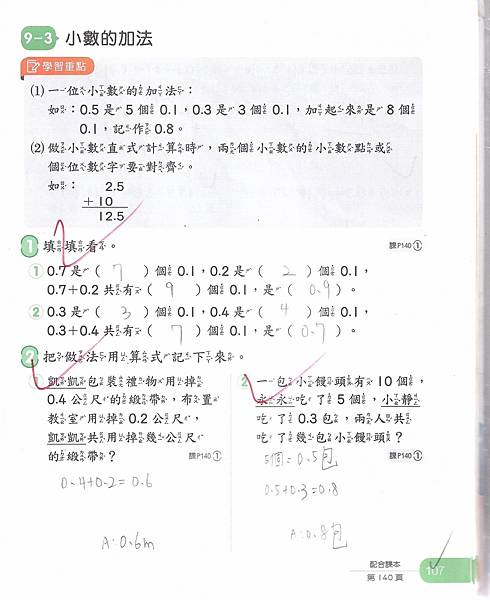 9-3 小數的加法
學習重點
(1) 一位小數的加法：
如：0.5是5個0.1，0.3是3個0.1，加起來是8個
0.1，記作0.8。
(2) 做小數直式計算時，兩個小數的小數點或
個位數字要對齊。
如： 2.5
+10
12.5
1 填填看。
課P140①
① 0.7是（ 7 ）個0.1，0.2是（ 2 ）個0.1，
0.7+0.2共有（ 9 ）個0.1，是（ 0.9 ）。
② 0.3是（ 3 ）個0.1，0.4是（ 4 ）個0.1，
0.3+0.4共有（ 7 ）個0.1，是（ 0.7 ）。
2 把做法用算式記下來。
1 凱凱包裝禮物用掉
0.4公尺的緞帶，布置
教室用掉0.2公尺，
凱凱共用掉幾公尺
的緞帶？
課P140①
0.4+0.2=0.6
A:0.6m
2 一包小饅頭有10個，
永永吃了5個，小靜
吃了0.3包，兩人共
吃了幾包小饅頭？
課P140①
5個=0.5包
0.5+0.3=0.8
A:0.8包
配合課本
第140頁
107